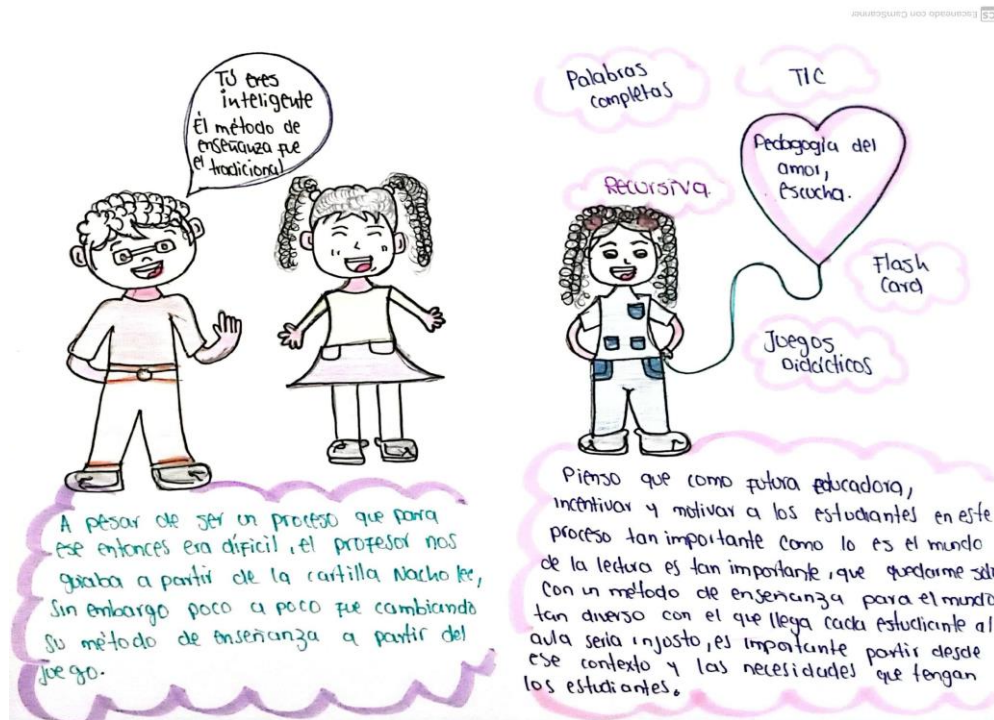 Escaneado con CamScanner
CS
Tú eres
inteligente
El método de
enseñanza fue
el tradicional
A pesar de ser un proceso que para
ese entonces era difícil, el profesor nos
guiaba a partir de la cartilla Nacho lee,
sin embargo poco a poco fue cambiando
su método de enseñanza a partir del
juego.
Palabras
completas
TIC
Pedagogía del
amor,
escucha.
Recursiva.
Flash
Card
Juegos
Didácticos
Pienso que como futura educadora,
incentivar y motivar a los estudiantes en este
proceso tan importante como lo es el mundo
de la lectura es tan importante, que quedarme sol
con un método de enseñanza para el mundo
tan diverso con el que llega cada estudiante al
aula sería injusto, es importante partir desde
ese contexto y las necesidades que tengan
los estudiantes.